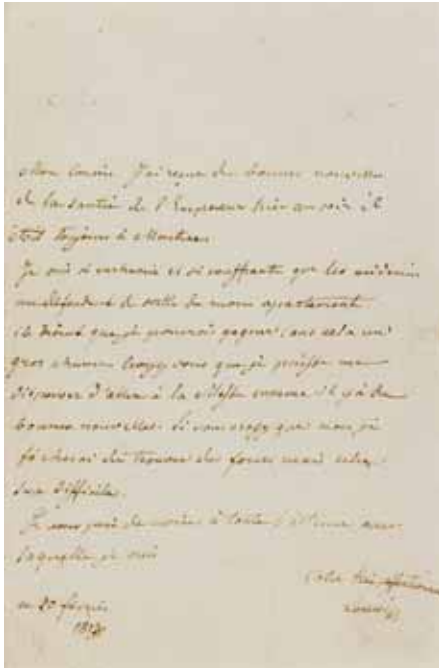 Mon cousin J'ai reçue des bonnes nouvelles
de la santée de l'Empereur hier au soir il
étoit toujour à
Je suis si enrhumée et si souffrante que les médecin
me défendent de sortir de mon apartement
ils disent que je pourrois gagner sans cela un
gros rhume croyez vous que je puisse me
dispenser d'aller à la comme il y à de
bonnes nouvelles. Si vous croyez que non, je
de trouver des forces mais cela
sera difficile.
Je vous prie de croire à toute l'estime avec
laquelle je suis
votre très affectionnée
Louise
ce 20 février